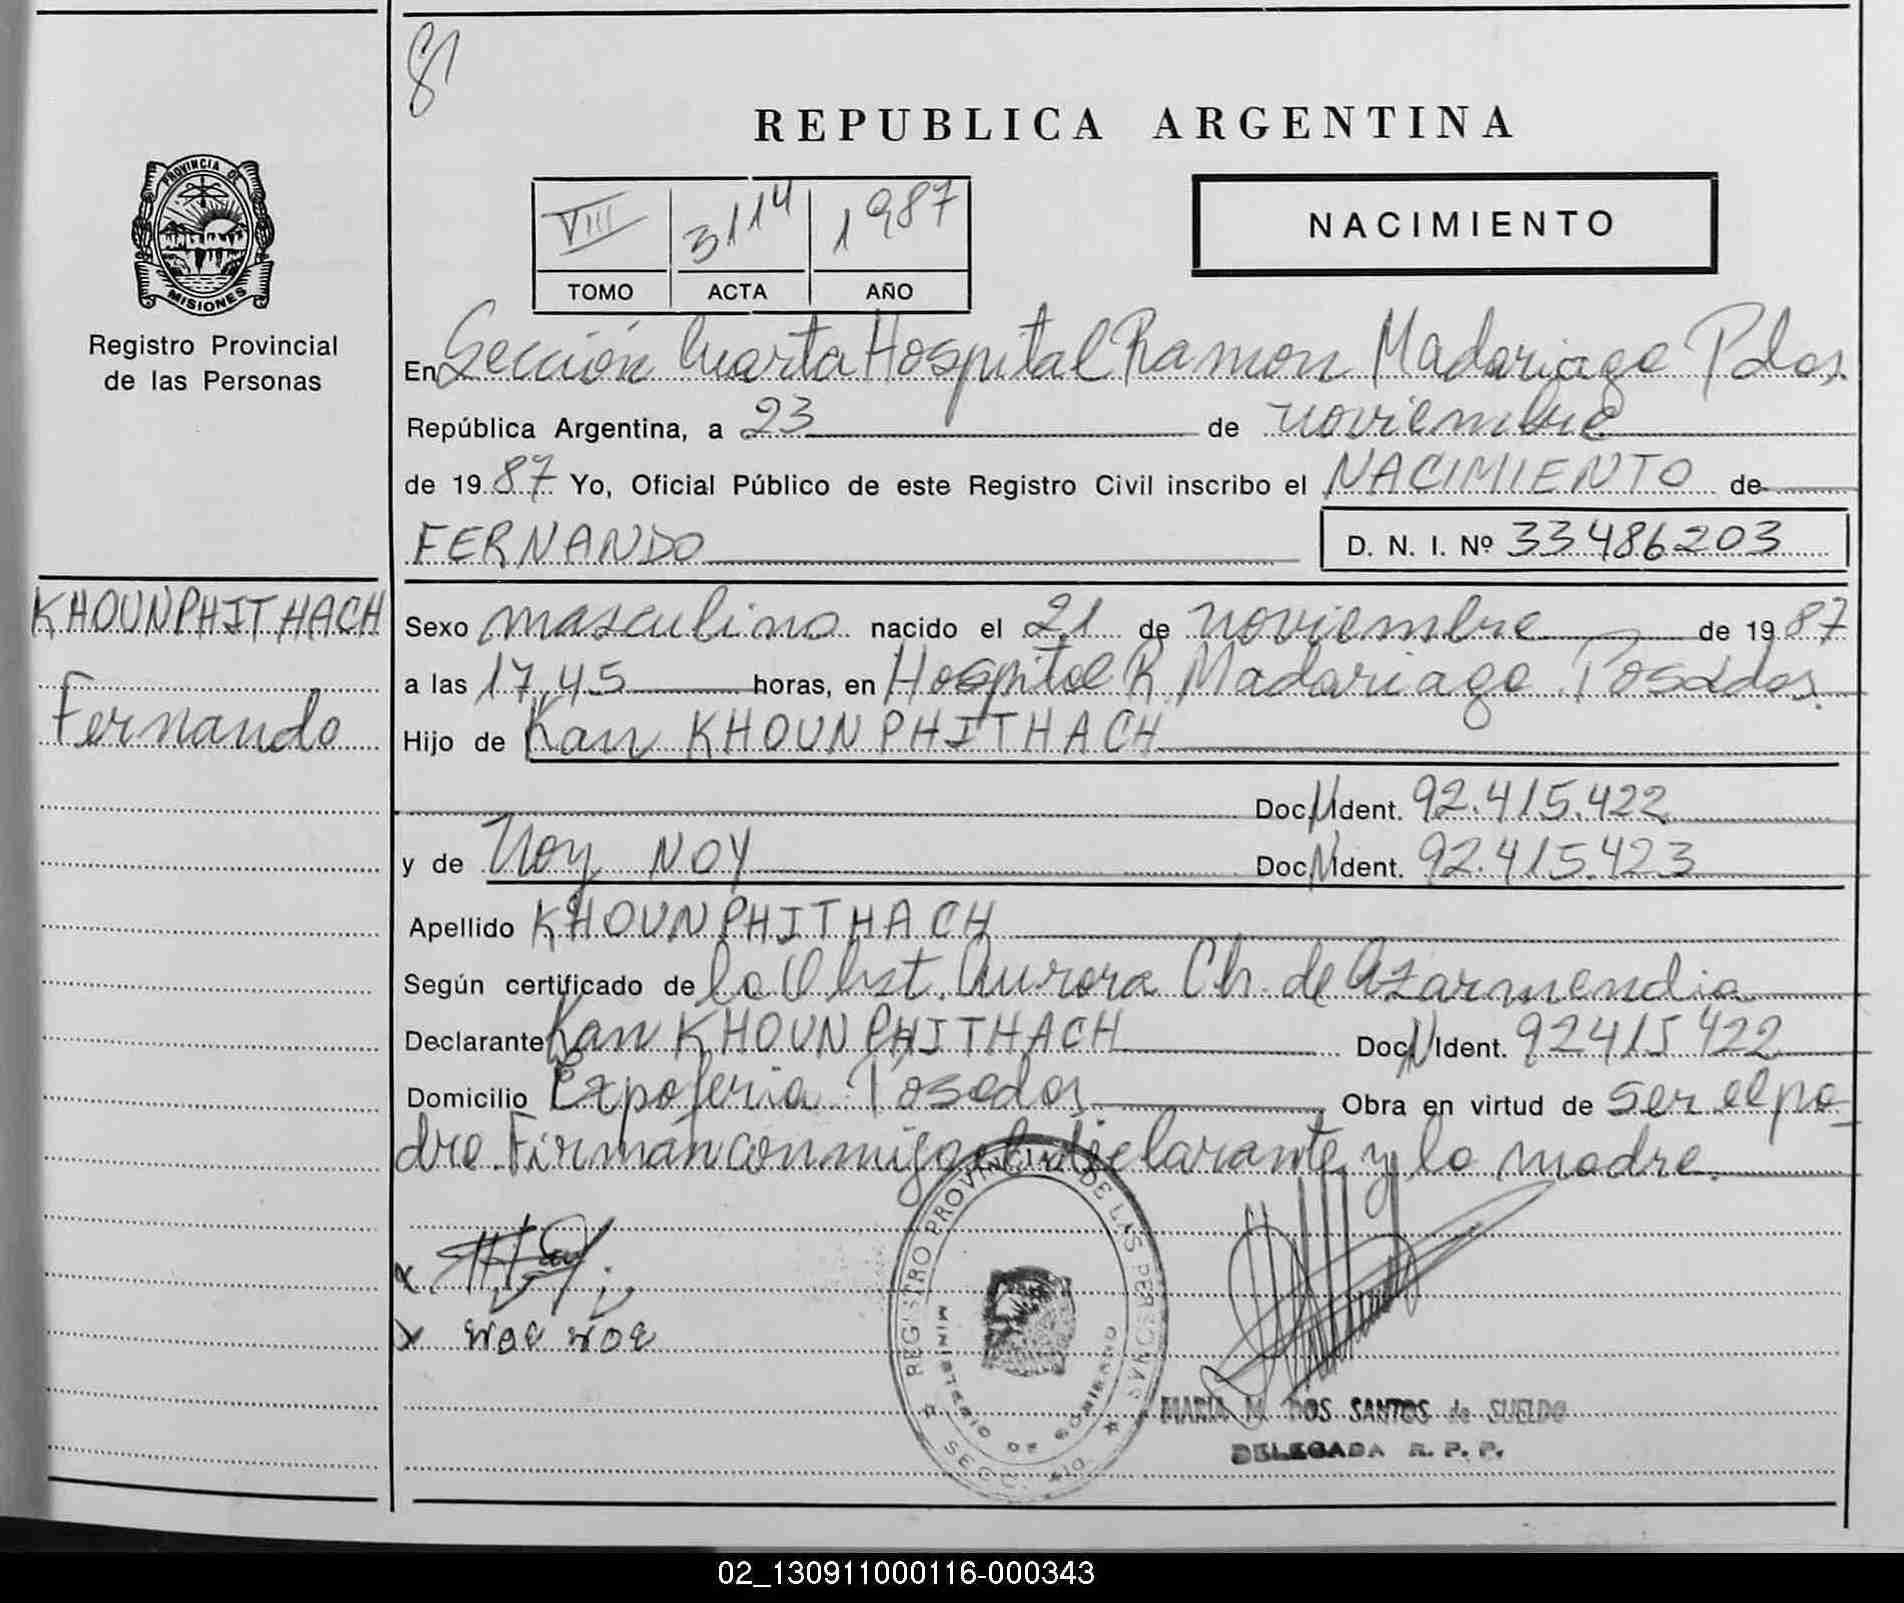 81
REPUBLICA ARGENTINA
PROVINCIA DE
MISIONES
Registro Provincial
de las Personas
VIII 3114 1987
TOMO ACTA AÑO
NACIMIENTO
En Sección Cuarta Hospital Ramon Madariaga Pdas.
República Argentina, a 23 de noviembre
de 1987 Yo, Oficial Público de este Registro Civil inscribo el NACIMIENTO de
FERNANDO D. N. I. Nº 33486203
KHOUNPHITHACH
Fernando
Sexo masculino nacido el 21 de noviembre de 1987
a las 17,45 horas, en Hospital R. Madariaga Posadas.
Hijo de Kan KHOUNPHITHACH
Doc. N Ident. 92.415.422
y de Noy NOY Doc. N Ident. 92.415.423
Apellido KHOUNPHITHACH
Según certificado de la Obst. Aurora Ch. de Azarmendia
Declarante Kan KHOUNPHITHACH Doc. N Ident. 92415422
Domicilio Expoferia Posadas Obra en virtud de ser el pa-
dre. Firman conmigo el declarante y la madre.
REGISTRO PROVINCIAL DE LAS PERSONAS
MINISTERIO DE GOBIERNO
MARIA M. DOS SANTOS de SUELDO
DELEGADA R. P. P.
02_130911000116-000343